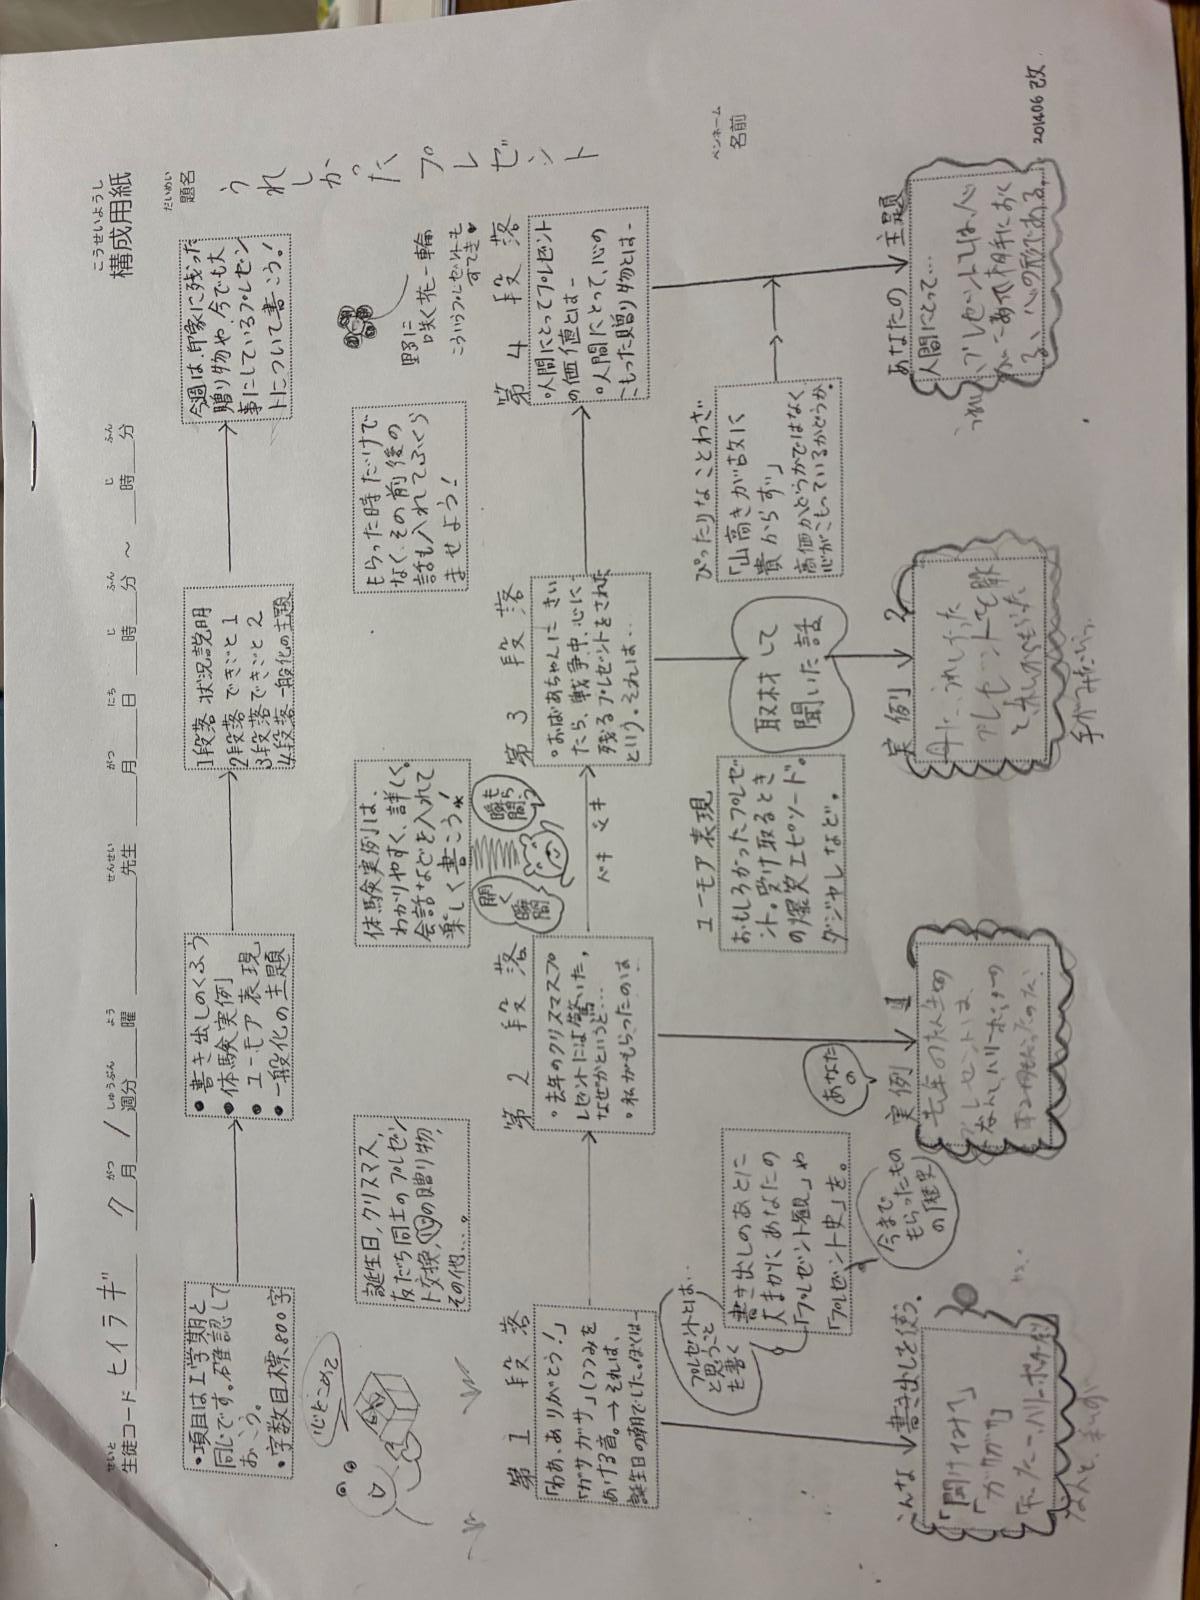 構成用紙
こうせいようし
生徒コード ヒイラギ 7月1週分 曜 先生 月 日 時 分 ～ 時 分
せいと がつ しゅうぶん よう せんせい がつ にち じ ふん じ ふん
だいめい
題名
うれしかったプレゼント
ペンネーム
名前
・項目は1学期と
同じです。確認して
おこう。
・字数目標800字
・書き出しのくふう
・体験実例
・ユーモア表現
・一般化の主題
1段落 状況説明
2段落 できごと1
3段落 できごと2
4段落 一般化の主題
今週は、印象に残った
贈り物や、今でも大
事にしているプレゼン
トについて書こう!
心をこめて
誕生日、クリスマス、
友だち同士のプレゼン
ト交換、心の贈り物、
その他…。
体験実例は、
わかりやすく、詳しく。
会話などを入れて
楽しく書こう!
もらった時だけで
なく、その前後の
話も入れてふくら
ませよう!
野に
咲く花一輪
こういうプレゼントも
すてき
開く
瞬間
もらう
瞬間
第1段落
「わあ、ありがとう!」
「ガサガサ」(つつみを
あける音。→それは、
誕生日の朝でした。ぼくは―
第2段落
・去年のクリスマスプ
レゼントには驚いた。
なぜかというと…
・私がもらったのは
ドキドキ
第3段落
・おばあちゃんにきい
たら、戦争中、心に
残るプレゼントをされた
という。それは…
第4段落
・人間にとってプレゼント
の価値とは―
・人間にとって、心の
こもった贈り物とは―
プレゼントとは…
と思うこと
を書く
書き出しのあとに
大まかにあなたの
「プレゼント観」や
「プレゼント史」を。
今まで
もらったもの
の歴史
あなたの
ユーモア表現
おもしろかったプレゼ
ント。受け取るとき
の爆笑エピソード。
ダジャレなど。
取材して
聞いた話
ぴったりなことわざ
「山高きが故に
貴からず」
高価かどうかではなく
心がこもっているかどうか。
こんな書き出しを使う。
「開けてみて」
「ガサガサ」
実例1
去年のたん生日の
プレゼントは、
なんと、ハリーポッターの
実例2
手がみだった
あなたの主題
人間にとって…
うれしいプレゼントとは、心
が
201406改